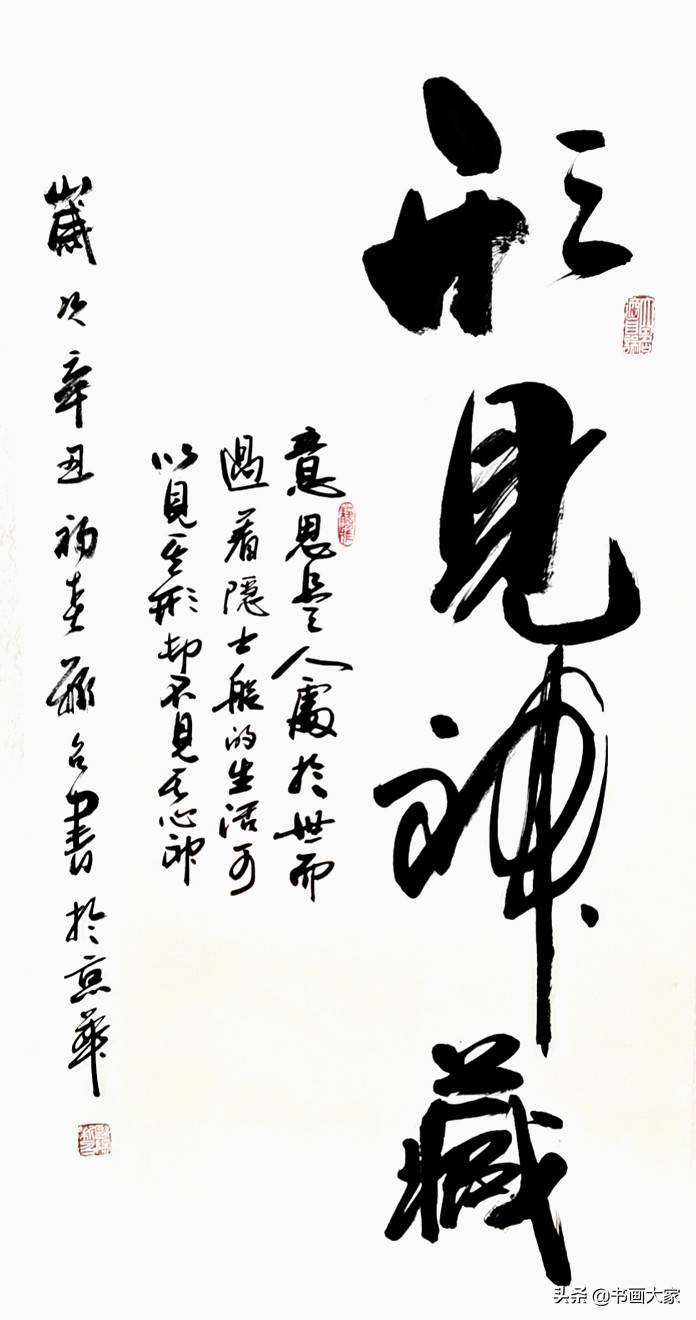 形見神藏
意思是人處於世而
過着隱士般的生活可
以見其形却不見其心神
歲次辛丑初春蘇白書於京華
头条 @书画大家